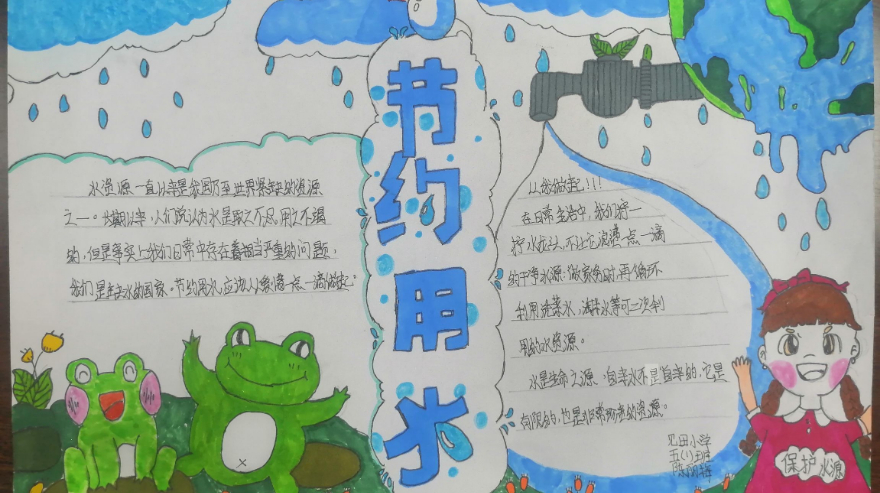 节约用水
水资源一直以来是全国乃至世界最缺的资源
之一。长期以来,人们总认为水是取之不尽,用之不竭
的,但是事实上我们日常中存在着相当严重的问题
我们是缺水的国家。节约用水,应该从点一点一滴做起。
从我做起!!!
在日常生活中,我们拧一
拧水龙头,不让它滴漏一点一滴
的干净水源;做家务时,再循环
利用洗菜水,洗澡水等可二次利
用的水资源。
水是生命之源,自来水不是自来的,它是
有限的,也是非常珍贵的资源。
田小学
五(1)班
陈
保护水源